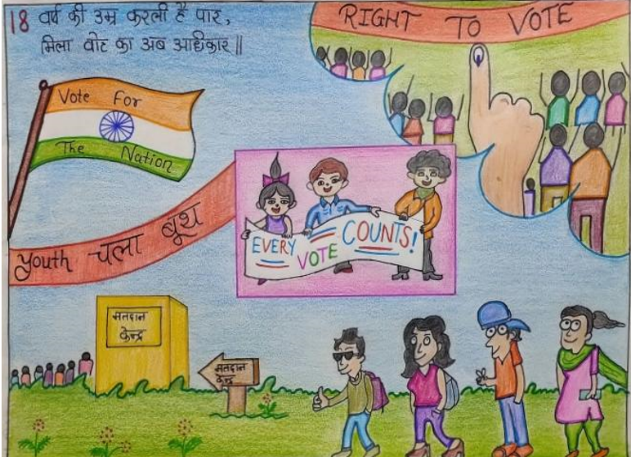 18 वर्ष की उम्र करली है पार,
मिला वोट का अब अधिकार॥
RIGHT TO VOTE
Vote For
The Nation
Youth चला बूथ
EVERY VOTE COUNTS!
मतदान
केन्द्र
मतदान
केन्द्र